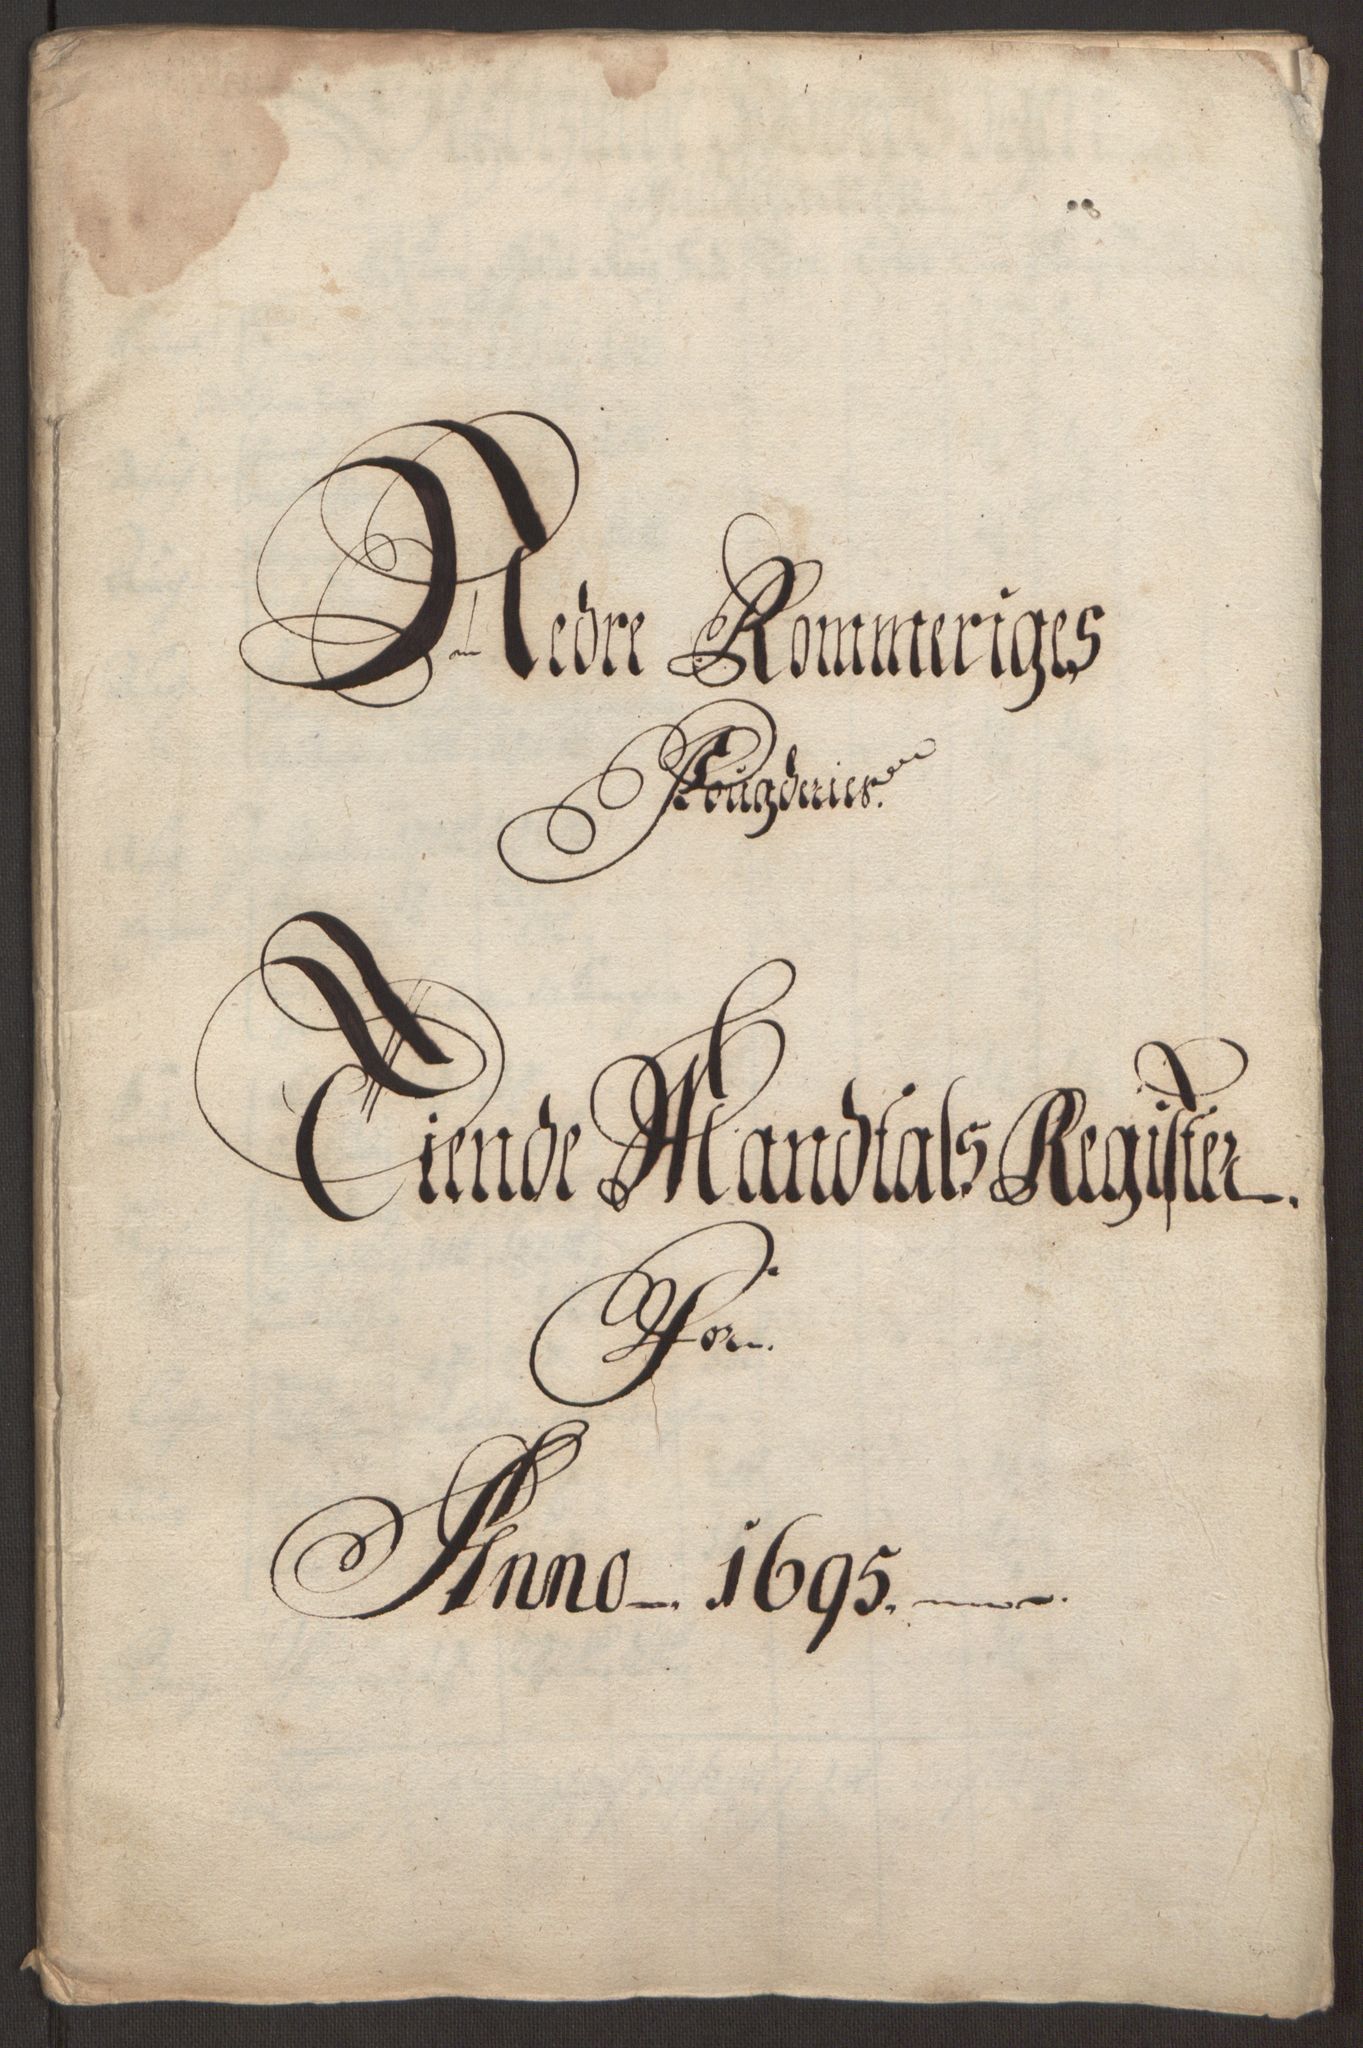 Nedre Rommeriges
Fougderies.
Tiende Mandtals Register.
For.
Anno. 1695.